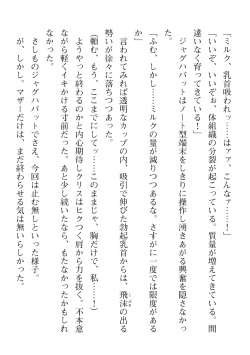 「ミルク、乳首吸われッ……はァァ、こんなァ……！」
「いいぞ、いいぞぉ、体組織の分裂が起こっている。質量が増えてきている。間
違いなく育ってきている！」
　ジャグハバットはノート型端末をしきりに操作し湧きあがる興奮を隠さなかっ
た。
「ふむ、しかし……ミルクの量が減りつつあるな。さすがに一度では限度がある
か」
　言われてみれば透明なカップの内、吸引で伸びた勃起乳首からは、飛沫の出る
勢いが徐々に落ちつつあった。
（頼む、もう、ここまでにして……このままじゃ、胸だけで、私……！）
　ようやっと終わるのかと内心期待しクリスはヒクつく肩から力を抜く。不本意
ながら軽くイキかける寸前だった。あと少し続いたなら、もたなかったかもしれ
なかった。
　さしものジャグハバットでさえ、今回は止む無しといった様子。
　が、しかし。マザーだけは、まだ終わらせる気は無いらしかった。